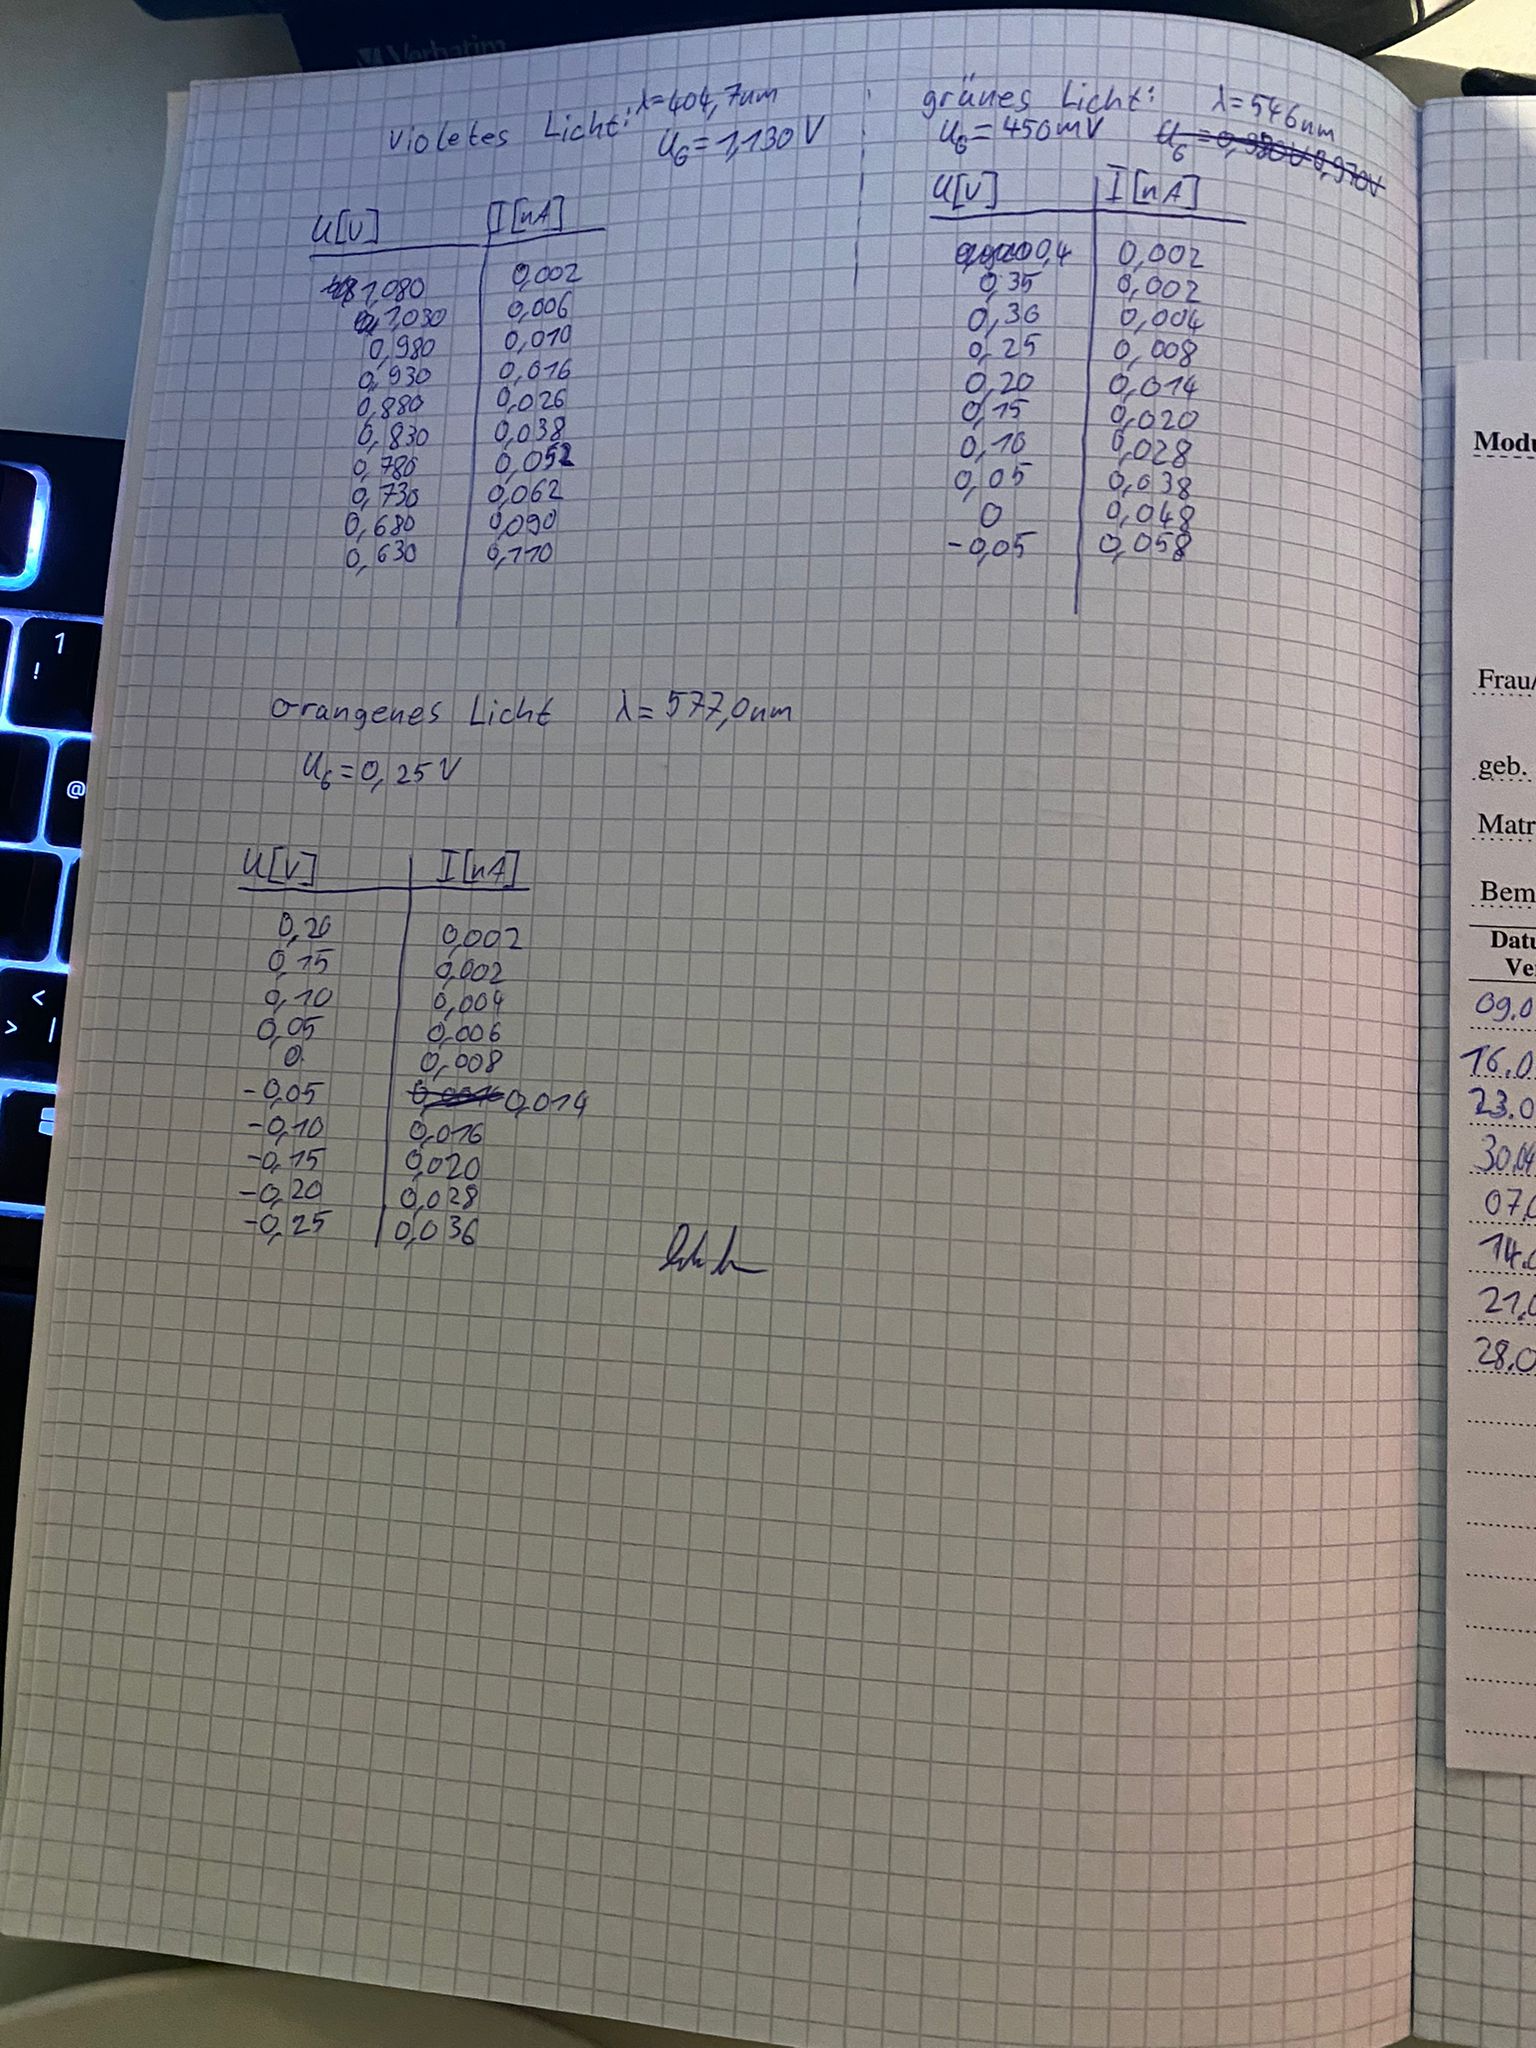 Verbatim
violetes Licht: λ=404,7nm
U_G=1,130 V
U[V] I[nA]
1,080 0,002
1,030 0,006
0,980 0,010
0,930 0,016
0,880 0,026
0,830 0,038
0,780 0,052
0,730 0,062
0,680 0,090
0,630 0,110
grünes Licht: λ=546nm
U_G=450mV U_G=0,980V 0,970V
U[V] I[nA]
0,4 0,002
0,35 0,002
0,30 0,004
0,25 0,008
0,20 0,014
0,15 0,020
0,10 0,028
0,05 0,038
0 0,048
-0,05 0,058
orangenes Licht λ=577,0nm
U_G=0,25V
U[V] I[nA]
0,20 0,002
0,15 0,002
0,10 0,004
0,05 0,006
0 0,008
-0,05 0,014
-0,10 0,016
-0,15 0,020
-0,20 0,028
-0,25 0,036
1
!
@
<
> |
Modu
Frau/
geb.
Matr
Bem
Datu
Ve
09.0
16.0
23.0
30.04
07.0
14.0
21.0
28.0